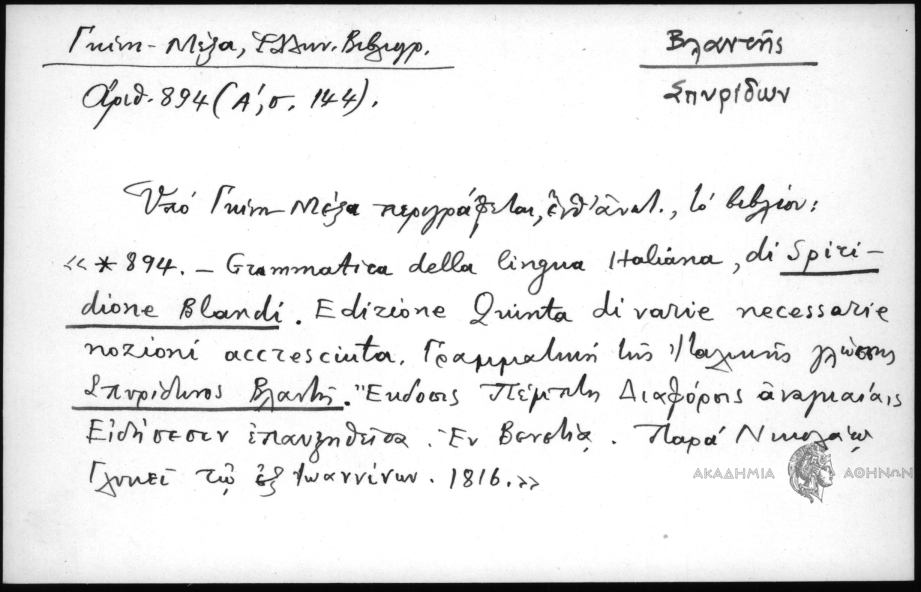 Γκίνη - Μέξα, Ἑλλην. Βιβλιογρ.
Ἀριθ. 894 (Α', σ. 144).
Βλαντῆς
Σπυρίδων
Ὑπό Γκίνη - Μέξα περιγράφεται, ἐνθ' ἀνωτ., τό βιβλίον:
«*894. — Grammatica della lingua Italiana, di Spiri-
dione Blandi. Edizione Quinta di varie necessarie
nozioni accresciuta. Γραμματική τῆς Ἰταλικῆς γλώσσης
Σπυρίδωνος Βλαντῆ. Ἔκδοσις Πέμπτη Διαφόροις ἀναγκαίαις
Εἰδήσεσιν ἐπαυξηθεῖσα. Ἐν Βενετίᾳ. Παρά Νικολάῳ
Γλυκεῖ τῷ ἐξ Ἰωαννίνων. 1816.»
ΑΚΑΔΗΜΙΑ ΑΘΗΝΩΝ